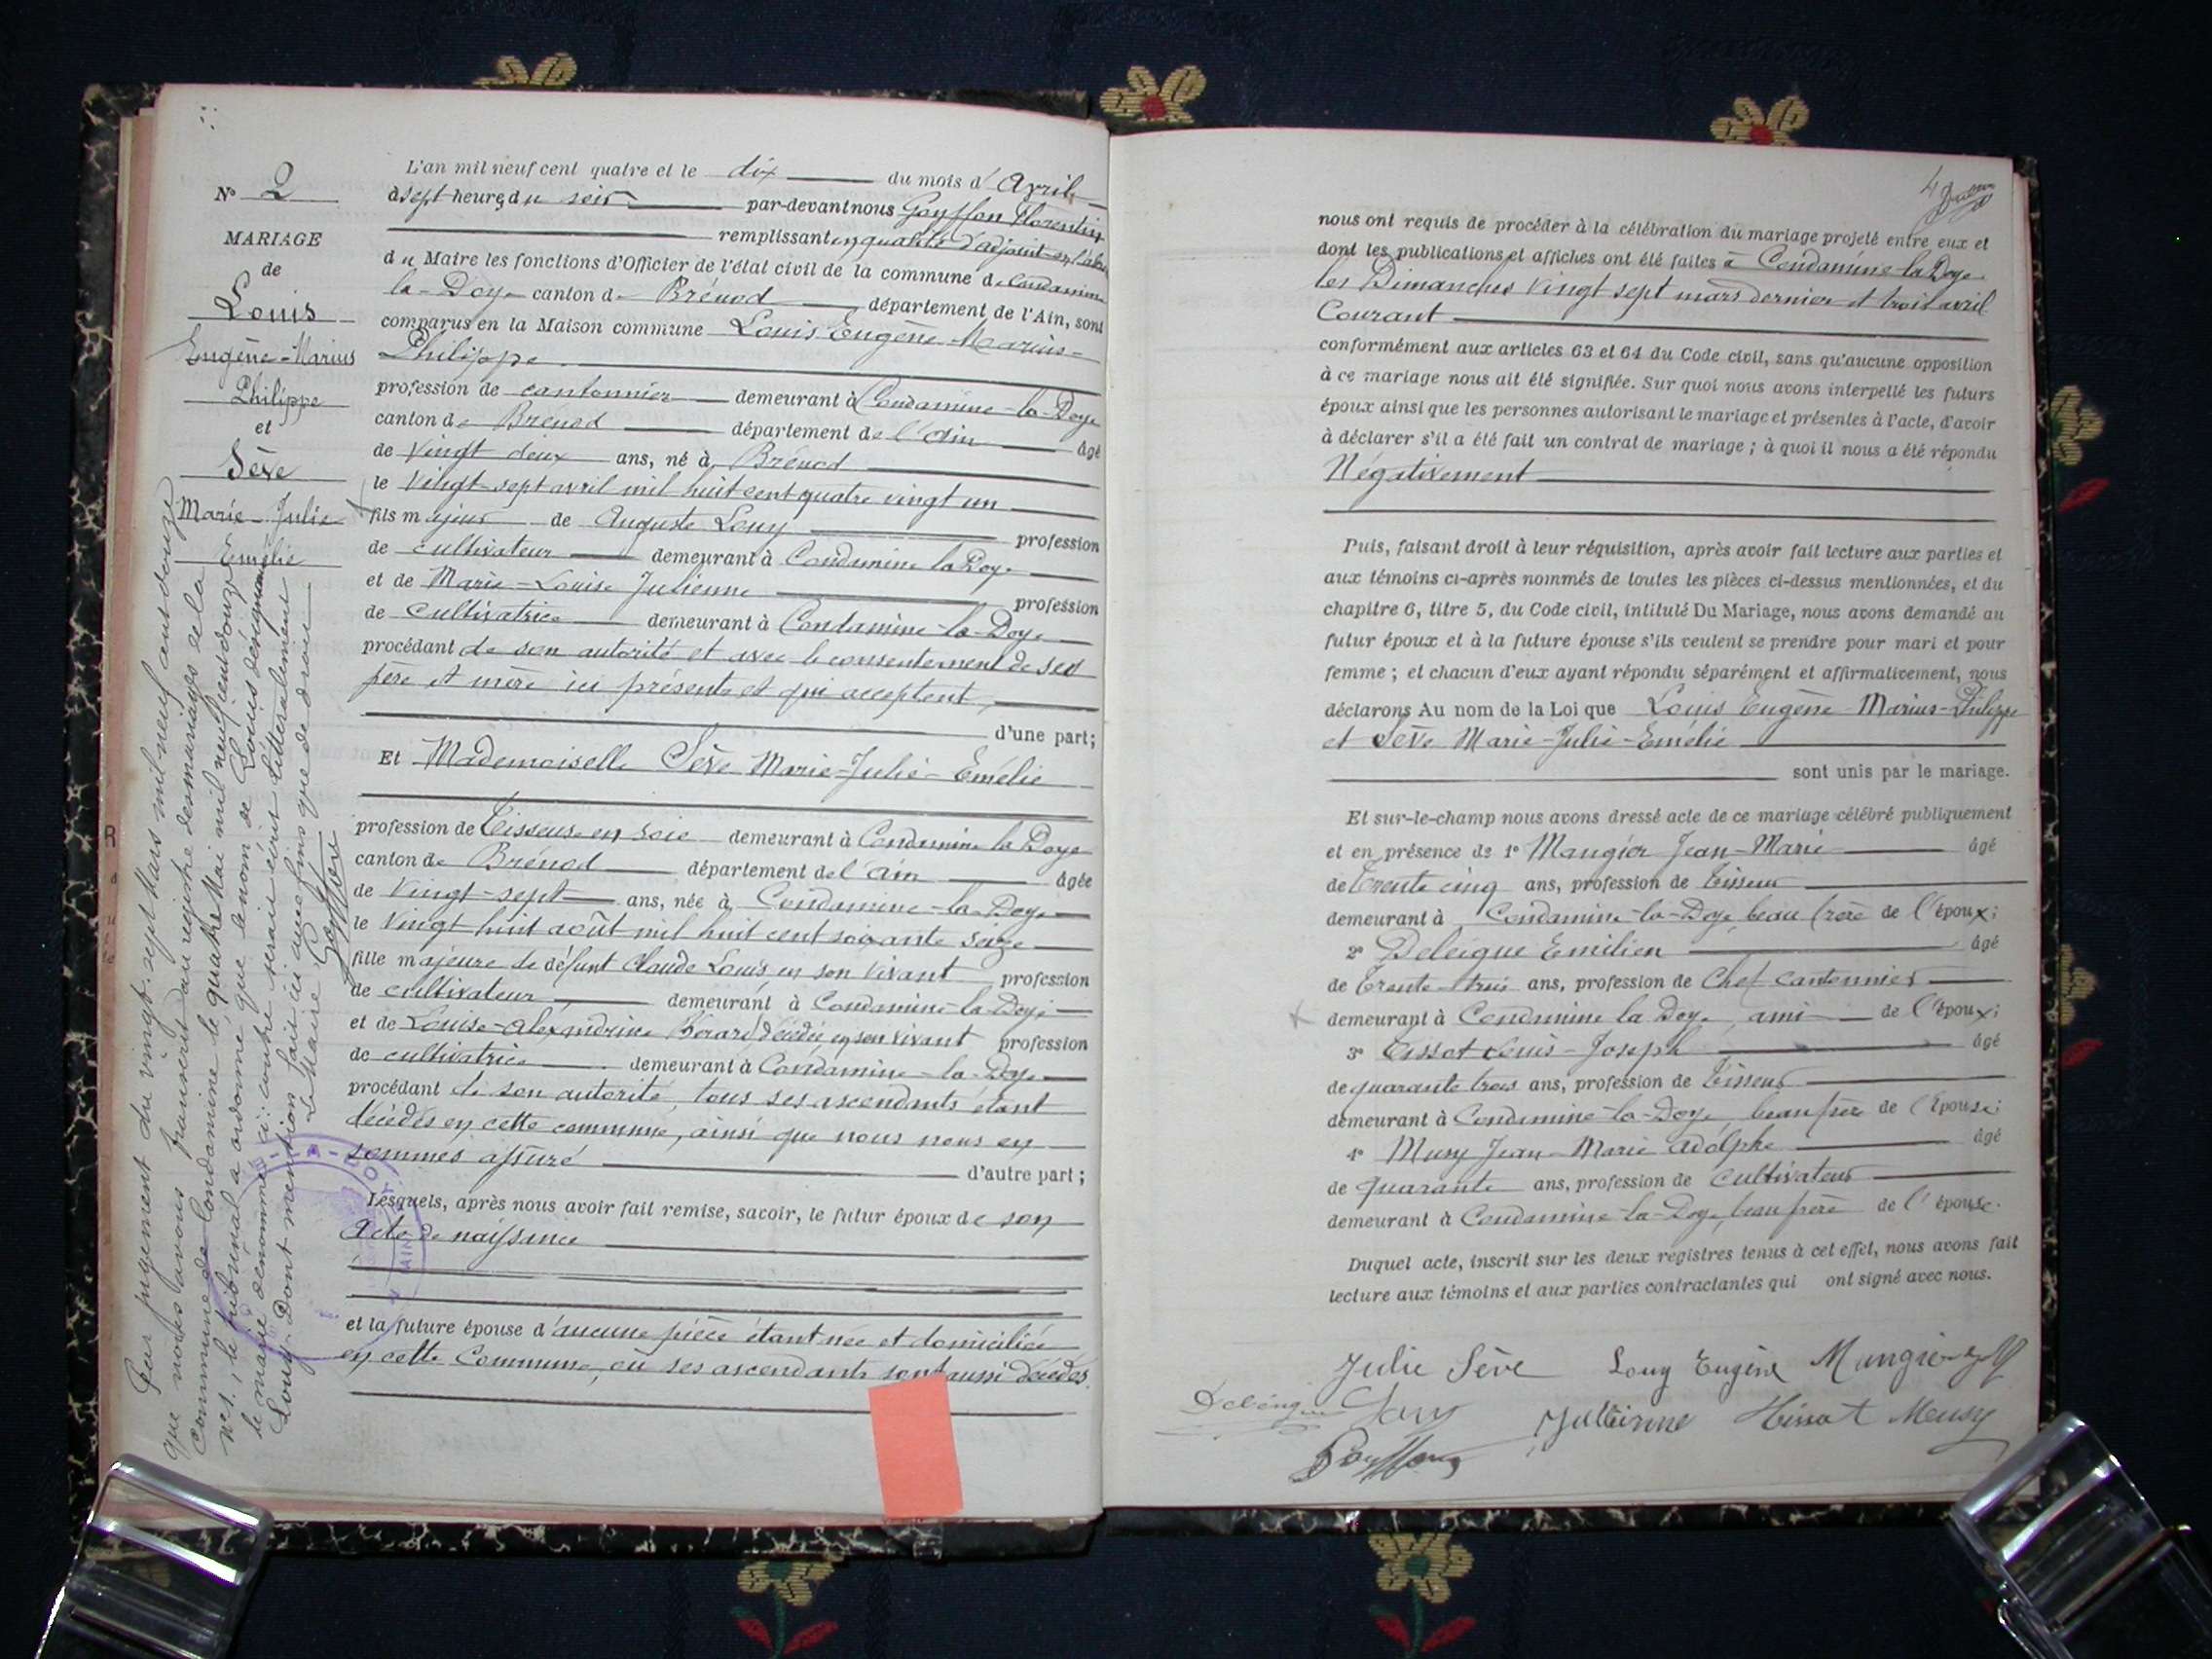 N° 2
MARIAGE
de
Louis
Eugène-Marius
Philippe
et
Sève
Marie-Julie
Emélie
Par jugement du vingt-sept Mars mil neuf cent douze
que nous avons transcrit au registre des mariages de la
Commune de Condamine le quatre Mai mil neuf cent douze
N° 1, le tribunal a ordonné que le nom de Louis désignant
le marié dénommé ci-contre serait écrit littéralement
Louy. Dont mention faite ici aux fins que de droit
Le Maire Goyffon
L'an mil neuf cent quatre et le dix du mois d'Avril
à sept heures du soir par-devant nous Goyffon Florentin
remplissant en qualité d'adjoint en l'abs
du Maire les fonctions d'Officier de l'état civil de la commune de Condamine
la-Doye canton de Brénod département de l'Ain, sont
comparus en la Maison commune Louis Eugène-Marius-
Philippe
profession de cantonnier demeurant à Condamine-la-Doye
canton de Brénod département de l'Ain âgé
de Vingt deux ans, né à Brénod
le Vingt-sept avril mil huit cent quatre vingt un
fils majeur de Auguste Louy profession
de cultivateur demeurant à Condamine la Doye
et de Marie-Louise Julienne profession
de cultivatrice demeurant à Condamine-la-Doye
procédant de son autorité et avec le consentement de ses
père et mère ici présents et qui acceptent,
d'une part;
Et Mademoiselle Sève Marie-Julie-Emélie
profession de Tisseuse en soie demeurant à Condamine la Doye
canton de Brénod département de l'Ain âgée
de Vingt-sept ans, née à Condamine-la-Doye
le Vingt huit août mil huit cent soixante seize
fille majeure de défunt Claude Louis en son vivant profession
de cultivateur demeurant à Condamine-la-Doye
et de Louise-Alexandrine Borard décédée, en son vivant profession
de cultivatrice demeurant à Condamine-la-Doye
procédant de son autorité, tous ses ascendants étant
décédés en cette commune, ainsi que nous nous en
sommes assuré d'autre part;
Lesquels, après nous avoir fait remise, savoir, le futur époux de son
Acte de naissance
et la future épouse d'aucune pièce étant née et domiciliée
en cette Commune, où ses ascendants sont aussi décédés.
4
nous ont requis de procéder à la célébration du mariage projeté entre eux et
dont les publications et affiches ont été faites à Condamine-la-Doye
les Dimanches Vingt sept mars dernier et trois avril
Courant
conformément aux articles 63 et 64 du Code civil, sans qu'aucune opposition
à ce mariage nous ait été signifiée. Sur quoi nous avons interpellé les futurs
époux ainsi que les personnes autorisant le mariage et présentes à l'acte, d'avoir
à déclarer s'il a été fait un contrat de mariage; à quoi il nous a été répondu
Négativement
Puis, faisant droit à leur réquisition, après avoir fait lecture aux parties et
aux témoins ci-après nommés de toutes les pièces ci-dessus mentionnées, et du
chapitre 6, titre 5, du Code civil, intitulé Du Mariage, nous avons demandé au
futur époux et à la future épouse s'ils veulent se prendre pour mari et pour
femme; et chacun d'eux ayant répondu séparément et affirmativement, nous
déclarons Au nom de la Loi que Louis Eugène-Marius-Philippe
et Sève Marie-Julie-Emélie
sont unis par le mariage.
Et sur-le-champ nous avons dressé acte de ce mariage célébré publiquement
et en présence de 1° Mangier Jean-Marie âgé
de Trente cinq ans, profession de Tisseur
demeurant à Condamine-la-Doye beau frère de l'époux;
2° Deleigue Emilien âgé
de Trente-trois ans, profession de Chef cantonnier
demeurant à Condamine la Doye, ami de l'époux;
3° Tissot Louis-Joseph âgé
de quarante trois ans, profession de Tisseur
demeurant à Condamine-la-Doye, beau frère de l'Epouse;
4° Musy Jean-Marie Adolphe âgé
de quarante ans, profession de cultivateur
demeurant à Condamine-la-Doye, beau frère de l'épouse.
Duquel acte, inscrit sur les deux registres tenus à cet effet, nous avons fait
lecture aux témoins et aux parties contractantes qui ont signé avec nous.
Julie Sève Louy Eugène Mangier
Louy Jullienne Tissot Musy
Goyffon